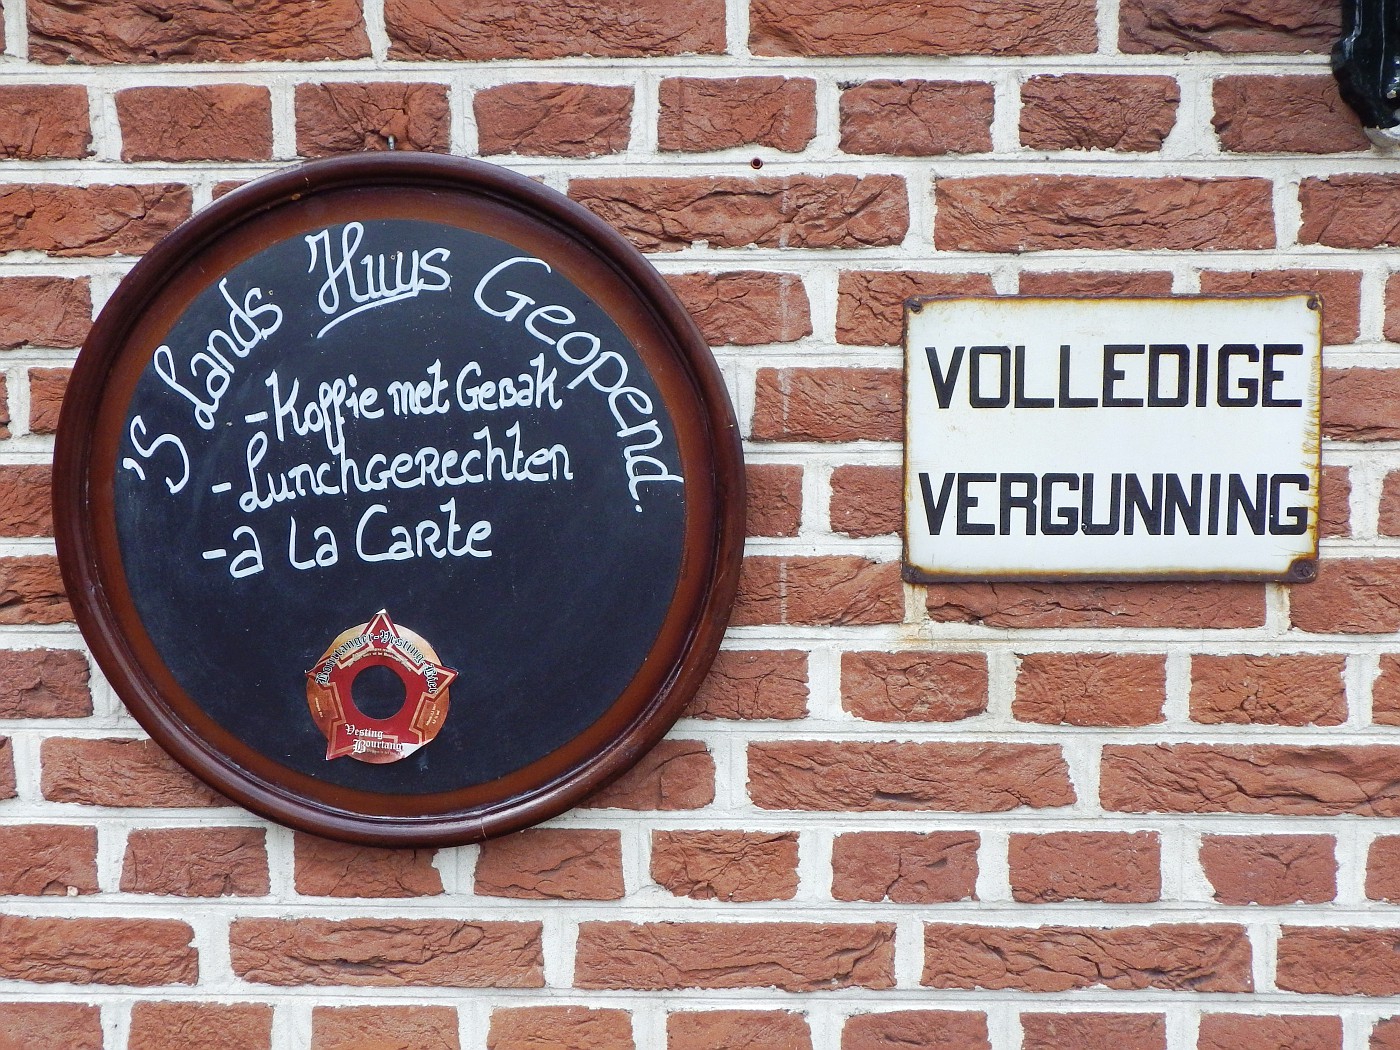 'S Lands Huys Geopend.
- Koffie met Gebak
- Lunchgerechten
- a La Carte
Bourtanger-Vesting-Bier
Vesting
Bourtang
VOLLEDIGE
VERGUNNING